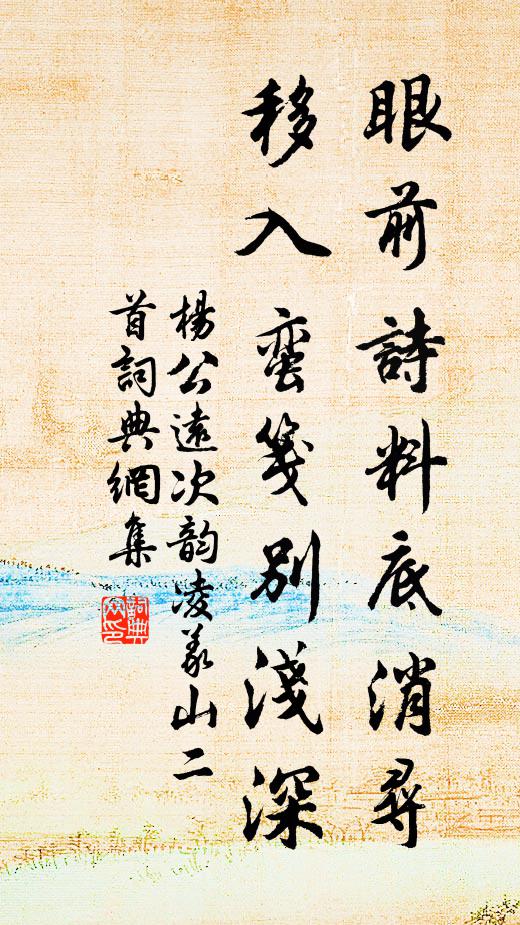 眼前詩料底消尋
移入蛮箋別淺深
楊公遠次韵凌義山二
首詞典網集
詞典